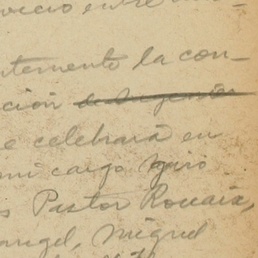 rvicio entre
ntemente la con-
ción
e celebrará en
mi cargo giro
s Pastor Rouaix,
angel, Miguel